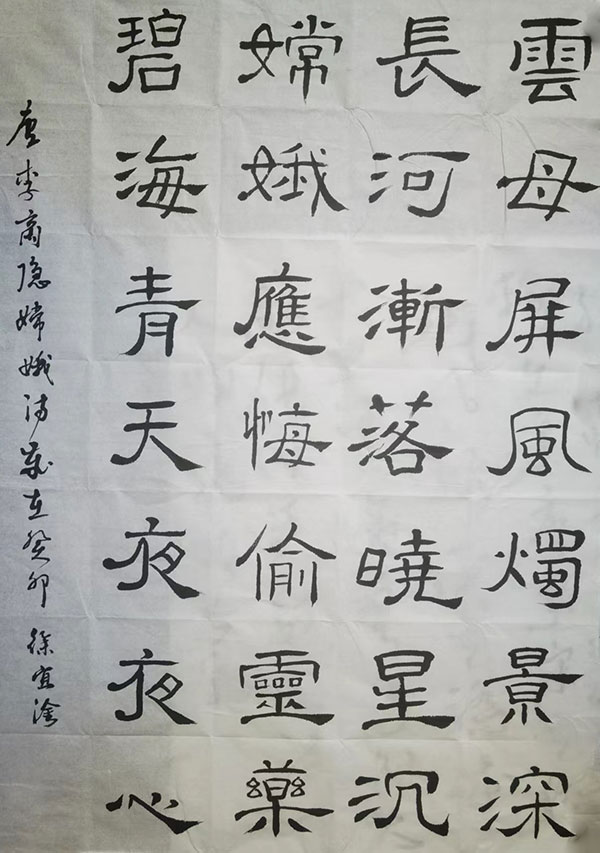 雲母屏風燭景深
長河漸落曉星沉
嫦娥應悔偷靈藥
碧海青天夜夜心
唐李商隐嫦娥诗歲在癸卯 徐宜淦